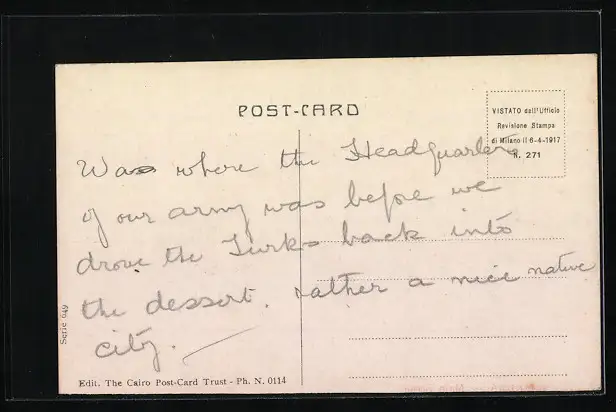 POST-CARD
VISTATO dall'Ufficio
Revisione Stampa
di Milano il 6-4-1917
N. 271
Was where the Headquarters
of our army was before we
drove the Turks back into
the dessert. rather a nice native
city.
Serie 649
Edit. The Cairo Post-Card Trust - Ph. N. 0114